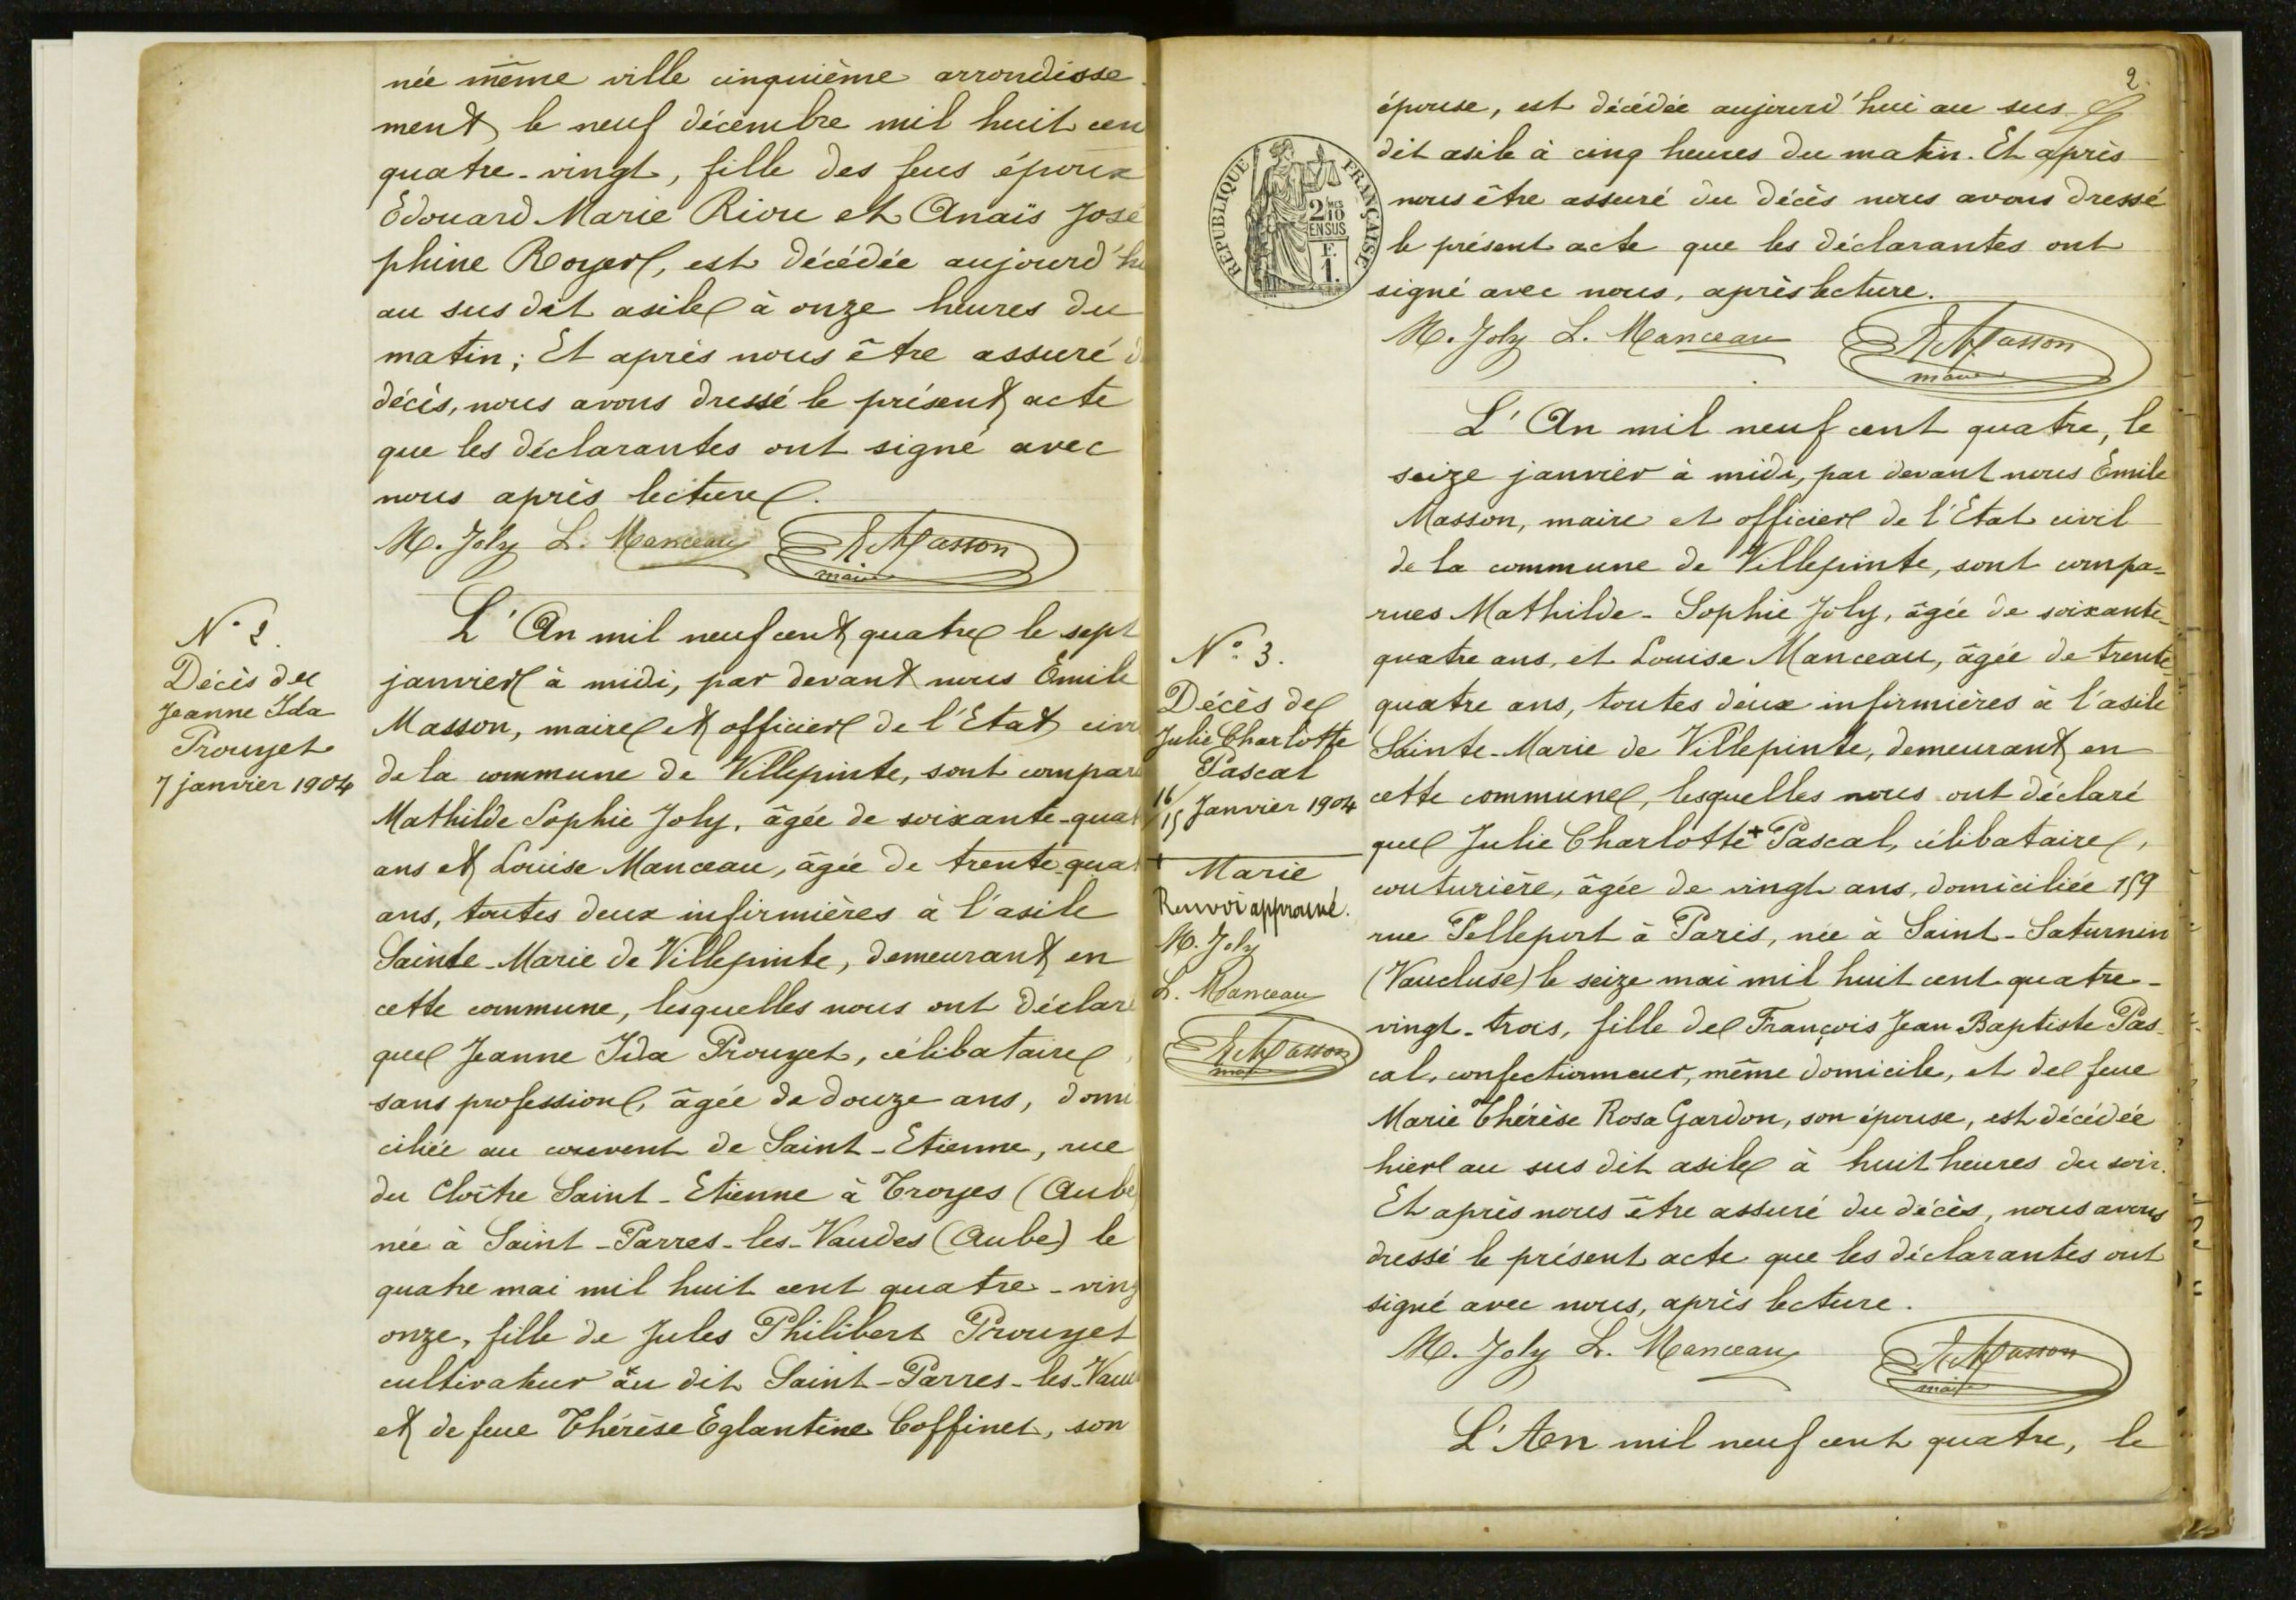 née même ville cinquième arrondisse
ment, le neuf décembre mil huit cen
quatre-vingt, fille des feus époux
Edouard Marie Riou et Anaïs José
phine Royer, est décédée aujourd'hu
au sus dit asile à onze heures du
matin; Et après nous être assuré d
décès, nous avons dressé le présent acte
que les déclarantes ont signé avec
nous après lecture.
M. Joly L. Manceau E. Masson
maire
N° 2.
Décès de
Jeanne Ida
Prouyet
7 janvier 1904
L'An mil neuf cent quatre le sept
janvier à midi, par devant nous Emile
Masson, maire et officier de l'Etat civi
de la commune de Villepinte, sont compar
Mathilde Sophie Joly, âgée de soixante-quat
ans et Louise Manceau, âgée de trente-quat
ans, toutes deux infirmières à l'asile
Sainte-Marie de Villepinte, demeurant en
cette commune, lesquelles nous ont déclaré
que Jeanne Ida Prouyet, célibataire,
sans profession, âgée de douze ans, domi
ciliée au couvent de Saint-Etienne, rue
du Cloître Saint-Etienne à Troyes (Aube)
née à Saint-Parres-les-Vaudes (Aube) le
quatre mai mil huit cent quatre-ving
onze, fille de Jules Philibert Prouyet
cultivateur au dit Saint-Parres-les-Vau
et de feue Thérèse Eglantine Coffinet, son
2.
épouse, est décédée aujourd'hui au sus
dit asile à cinq heures du matin. Et après
nous être assuré du décès nous avons dressé
le présent acte que les déclarantes ont
signé avec nous, après lecture.
REPUBLIQUE FRANÇAISE
2/10mes
EN SUS
F.
1.
M. Joly L. Manceau E. Masson
maire
L'An mil neuf cent quatre, le
seize janvier à midi, par devant nous Emile
Masson, maire et officier de l'Etat civil
de la commune de Villepinte, sont compa-
rues Mathilde-Sophie Joly, âgée de soixante-
quatre ans, et Louise Manceau, âgée de trente-
quatre ans, toutes deux infirmières à l'asile
Sainte-Marie de Villepinte, demeurant en
cette commune, lesquelles nous ont déclaré
que Julie Charlotte + Pascal, célibataire,
couturière, âgée de vingt ans, domiciliée 159
rue Pelleport à Paris, née à Saint-Saturnin
(Vaucluse) le seize mai mil huit cent quatre-
vingt-trois, fille de François Jean Baptiste Pas-
cal, confectionneur, même domicile, et de feue
Marie Thérèse Rosa Gardon, son épouse, est décédée
hier au sus dit asile à huit heures du soir.
Et après nous être assuré du décès, nous avons
dressé le présent acte que les déclarantes ont
signé avec nous, après lecture.
M. Joly L. Manceau E. Masson
maire
N° 3.
Décès de
Julie Charlotte
Pascal
16/15 Janvier 1904
+ Marie
Renvoi approuvé.
M. Joly
L. Manceau
E. Masson
L'An mil neuf cent quatre, le